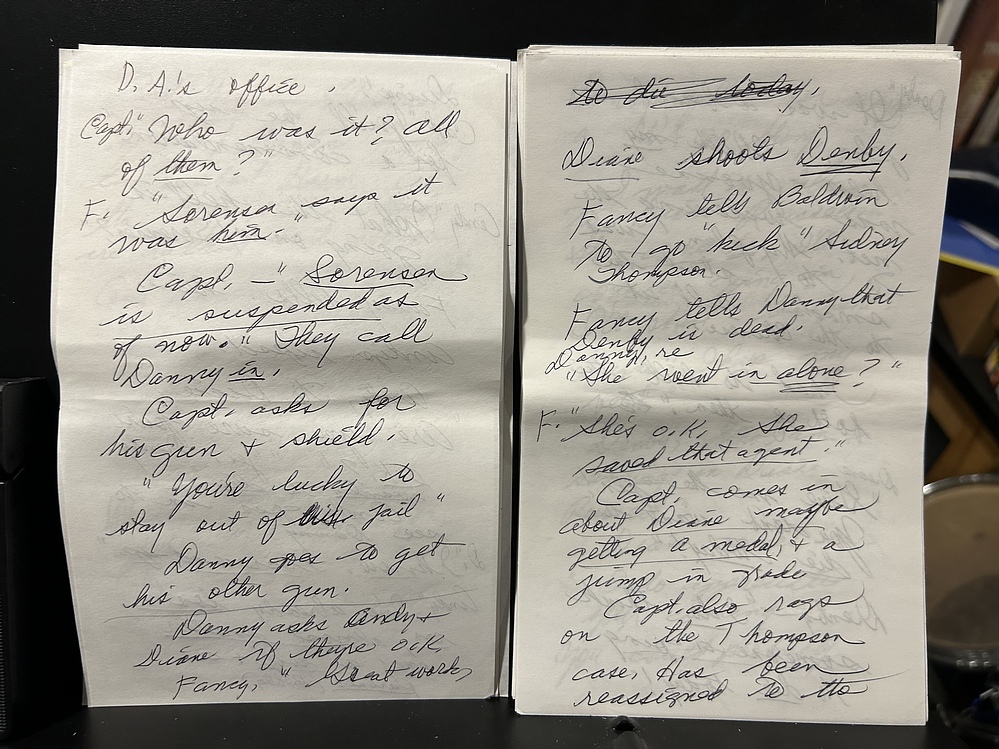 D.A.'s office.
Capt. "Who was it? all
of them?"
F. "Sorensen" says it
was him."
Capt. – "Sorensen
is suspended as
of now." They call
Danny in.
Capt. asks for
his gun + shield.
"You're lucky to
stay out of jail"
Danny goes to get
his other gun.
Danny asks Andy +
Diane if theyre O.K.
Fancy, "Great work,
to die today.
Diane shoots Denby.
Fancy tells Baldwin
to go "kick" Sidney
Thompson.
Fancy tells Danny that
Denby is dead.
Danny, re
"She went in alone?"
F. "She's O.K. She
saved that agent."
Capt. comes in
about Diane maybe
getting a medal, + a
jump in grade
Capt. also rags
on the Thompson
case. Has been
reassigned to the